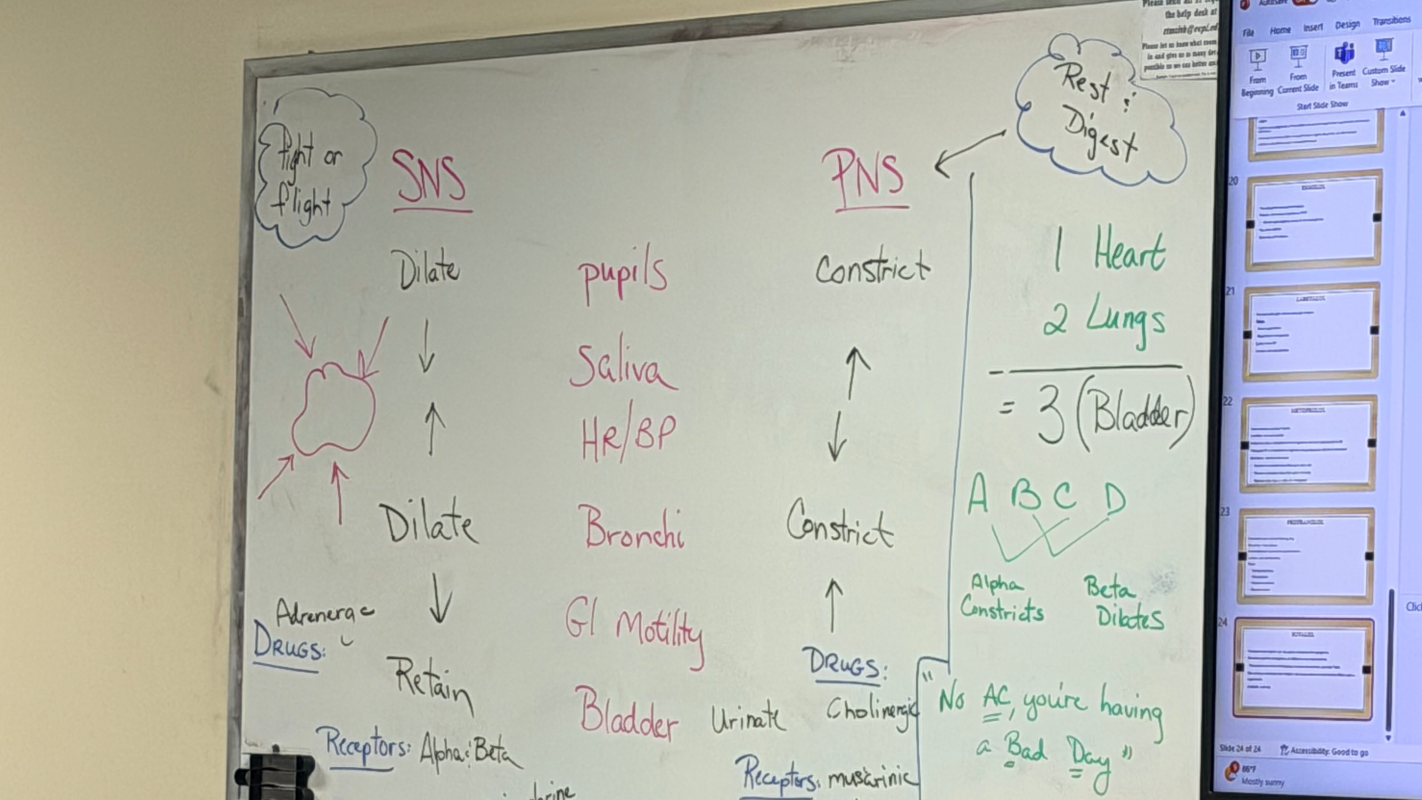 Fight or
flight
SNS
PNS
Rest &
Digest
Dilate
pupils
Constrict
↓
Saliva
↑
↑
HR/BP
↓
Dilate
Bronchi
Constrict
↓
GI Motility
↑
Adrenergic
DRUGS:
Retain
Bladder
Urinate
DRUGS:
Cholinergic
Receptors: Alpha & Beta
Receptors: muscarinic
1 Heart
2 Lungs
= 3 (Bladder)
A B C D
Alpha
Constricts
Beta
Dilates
"No AC, you're having
a Bad Day"
the help desk at
File Home Insert Design Transitions
From
Beginning
From
Current Slide
Present
in Teams
Custom Slide
Show
Start Slide Show
20
21
22
23
24
Slide 24 of 24 Accessibility: Good to go
86°F
Mostly sunny